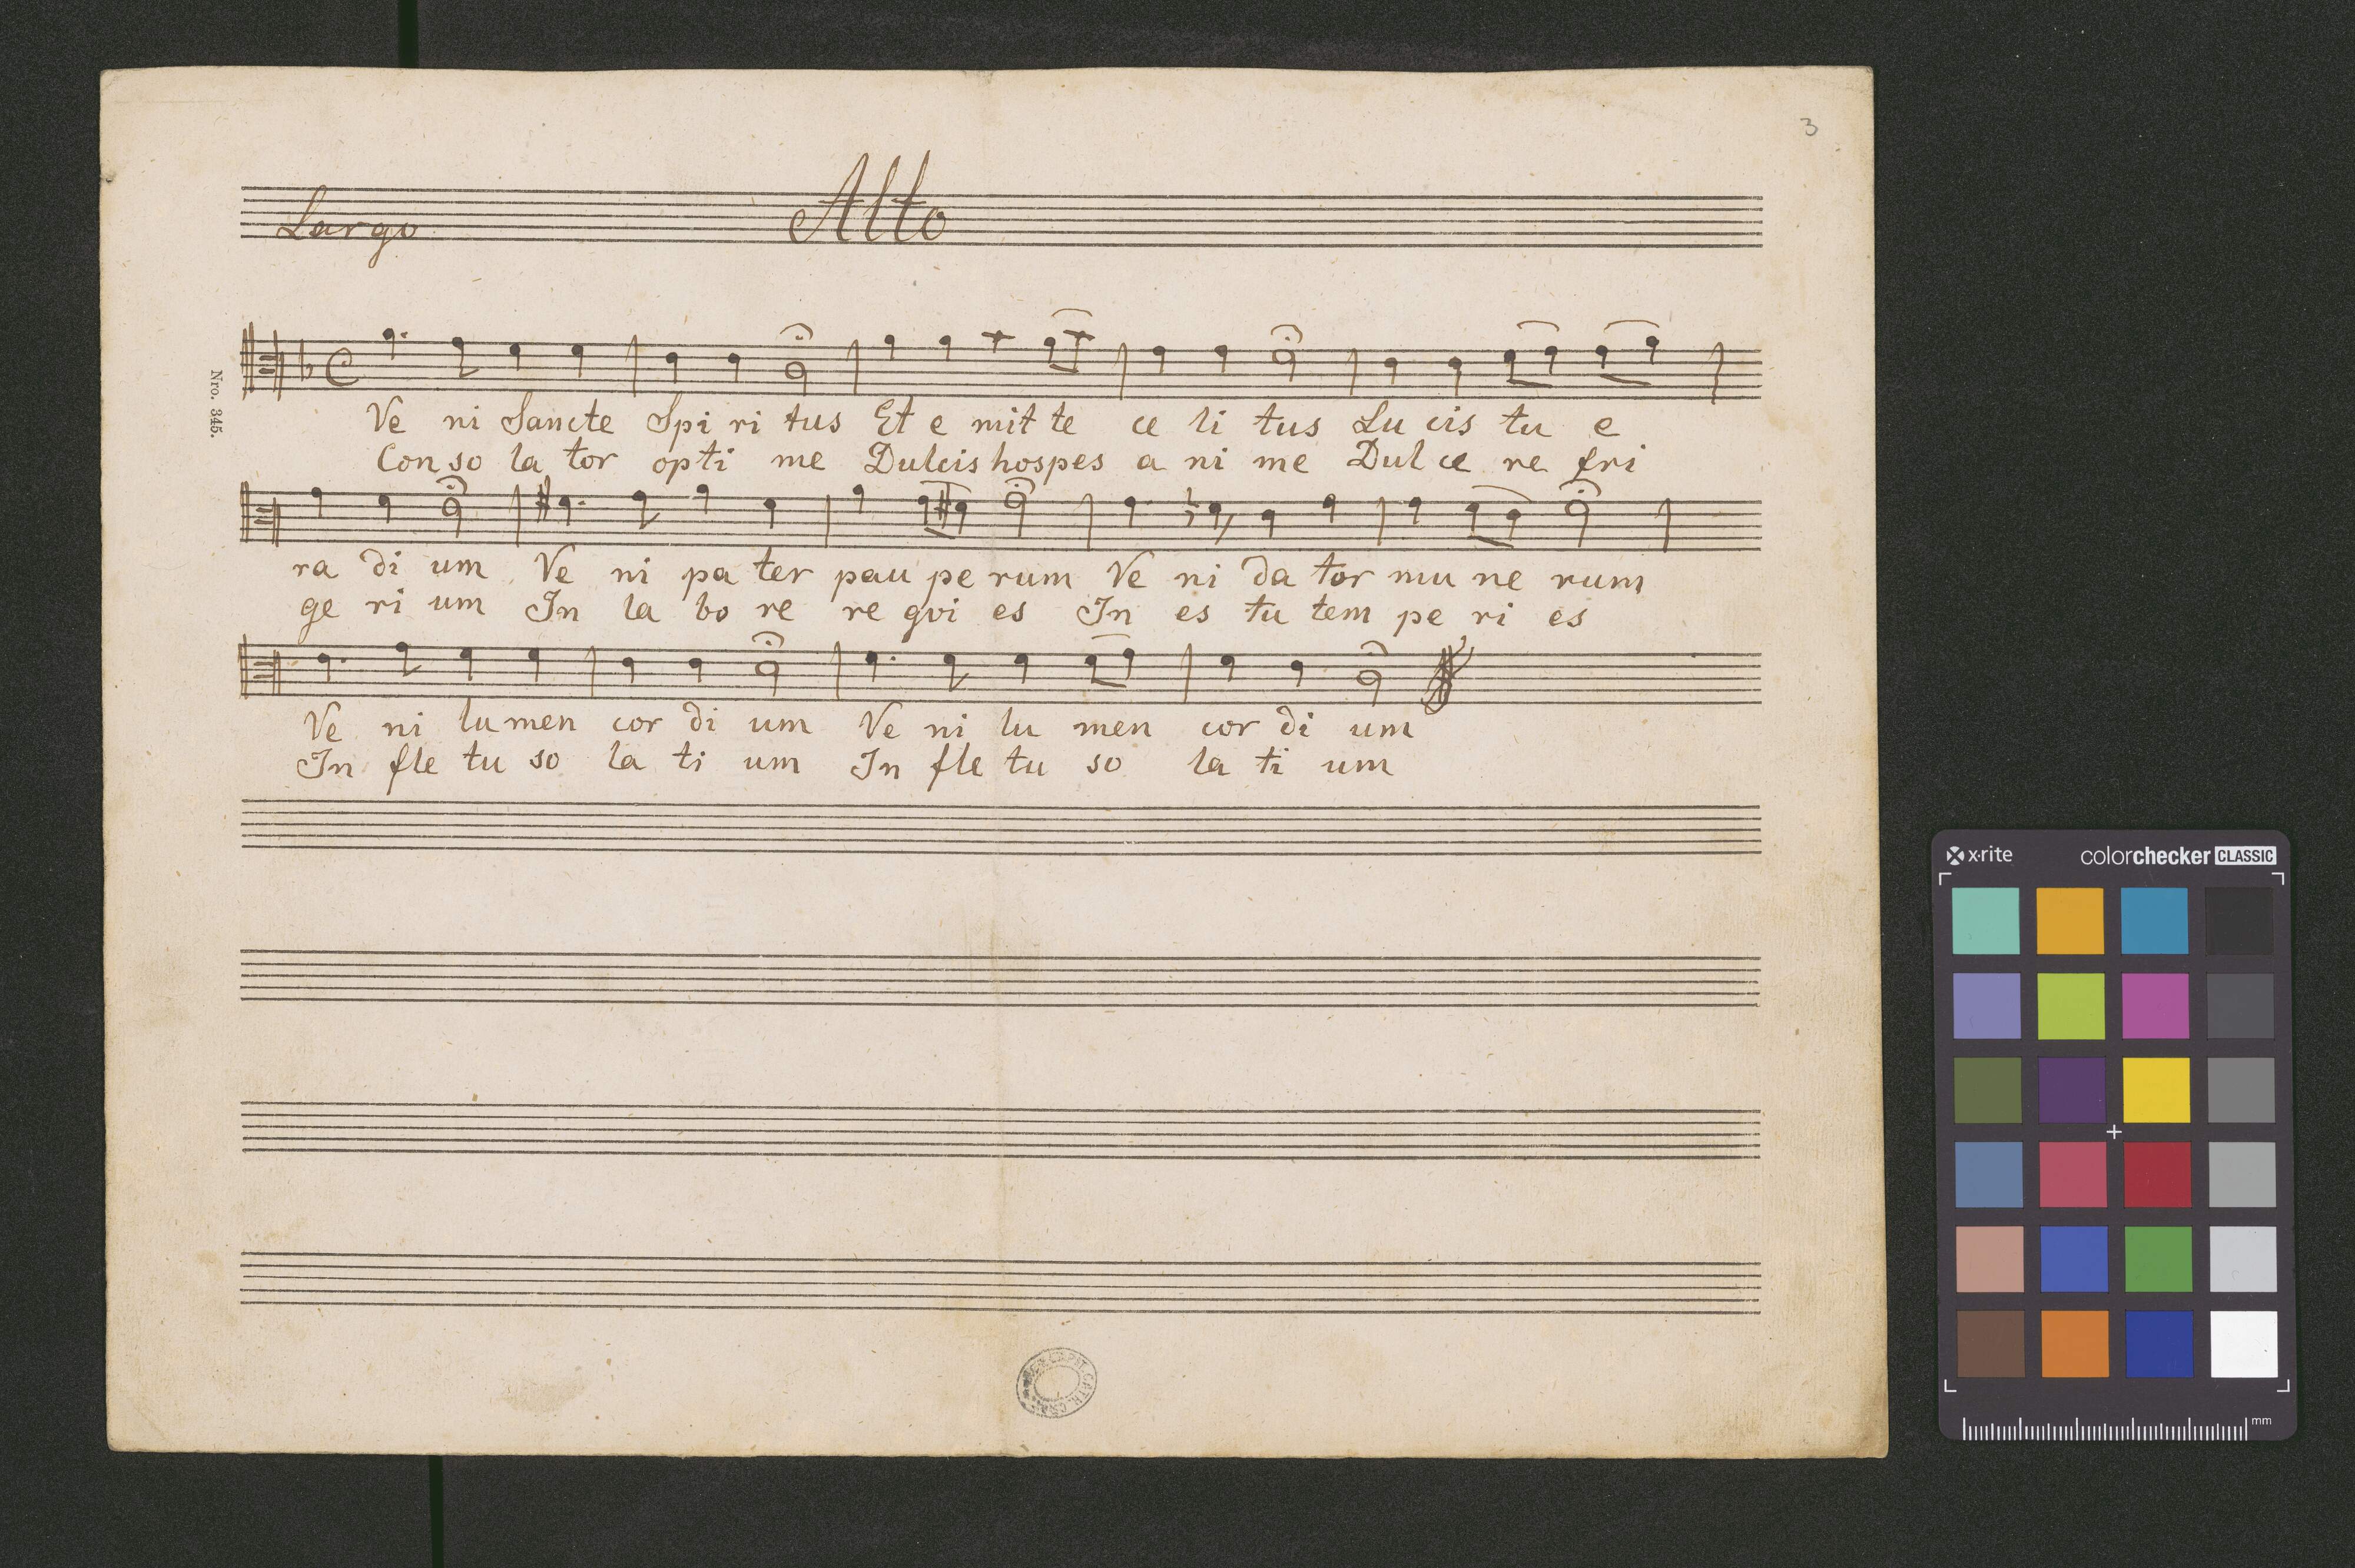 3
Largo Alto
Nro. 345.
Ve ni Sancte Spi ri tus Et e mit te ce li tus Lu cis tu e
Con so la tor opti me Dulcis hospes a ni me Dul ce re fri
ra di um Ve ni pa ter pau pe rum Ve ni da tor mu ne rum
ge ri um In la bo re re qvi es In es tu tem pe ri es
Ve ni lu men cor di um Ve ni lu men cor di um
In fle tu so la ti um In fle tu so la ti um
x-rite colorchecker CLASSIC
mm